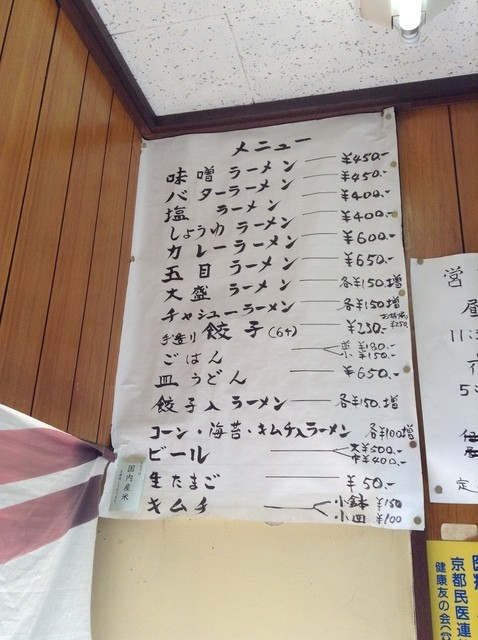 メニュー
味噌ラーメン ¥450.-
バターラーメン ¥450.-
塩ラーメン ¥400.-
しょうゆラーメン ¥400.-
カレーラーメン ¥600.-
五目ラーメン ¥650.-
大盛ラーメン 各¥150.増
チャシューラーメン 各¥150増
手造り餃子(6ケ) ¥230.-
ごはん 並¥180.- 小¥150.-
皿うどん ¥650.-
餃子入ラーメン 各¥150.増
コーン・海苔・キムチ入ラーメン 各¥100増
ビール 大¥500.- 中¥400.-
生たまご ¥50.-
キムチ 小鉢¥150 小皿¥100
国内産米
営
昼
11:
5
定
京都民医連
健康友の会